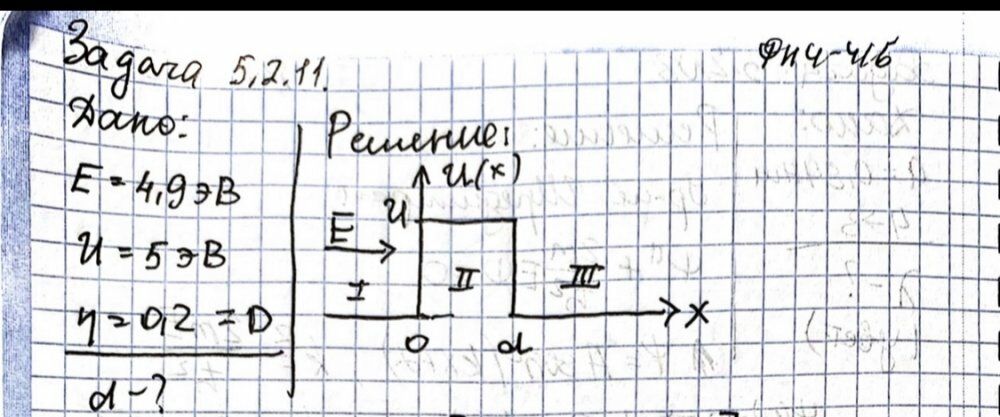 Задача 5.2.11.
Дано:
E = 4,9 эВ
U = 5 эВ
η = 0,2 = D
d - ?
Решение:
U(x)
U
E
I
II
III
x
0
d